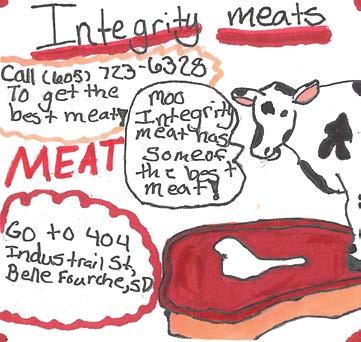 Integrity meats
Call (605) 723-6328
To get the
best meat!
Moo
Integrity
meat has
some of
the best
meat!
MEAT
Go to 404
Industrail St,
Belle Fourche, SD